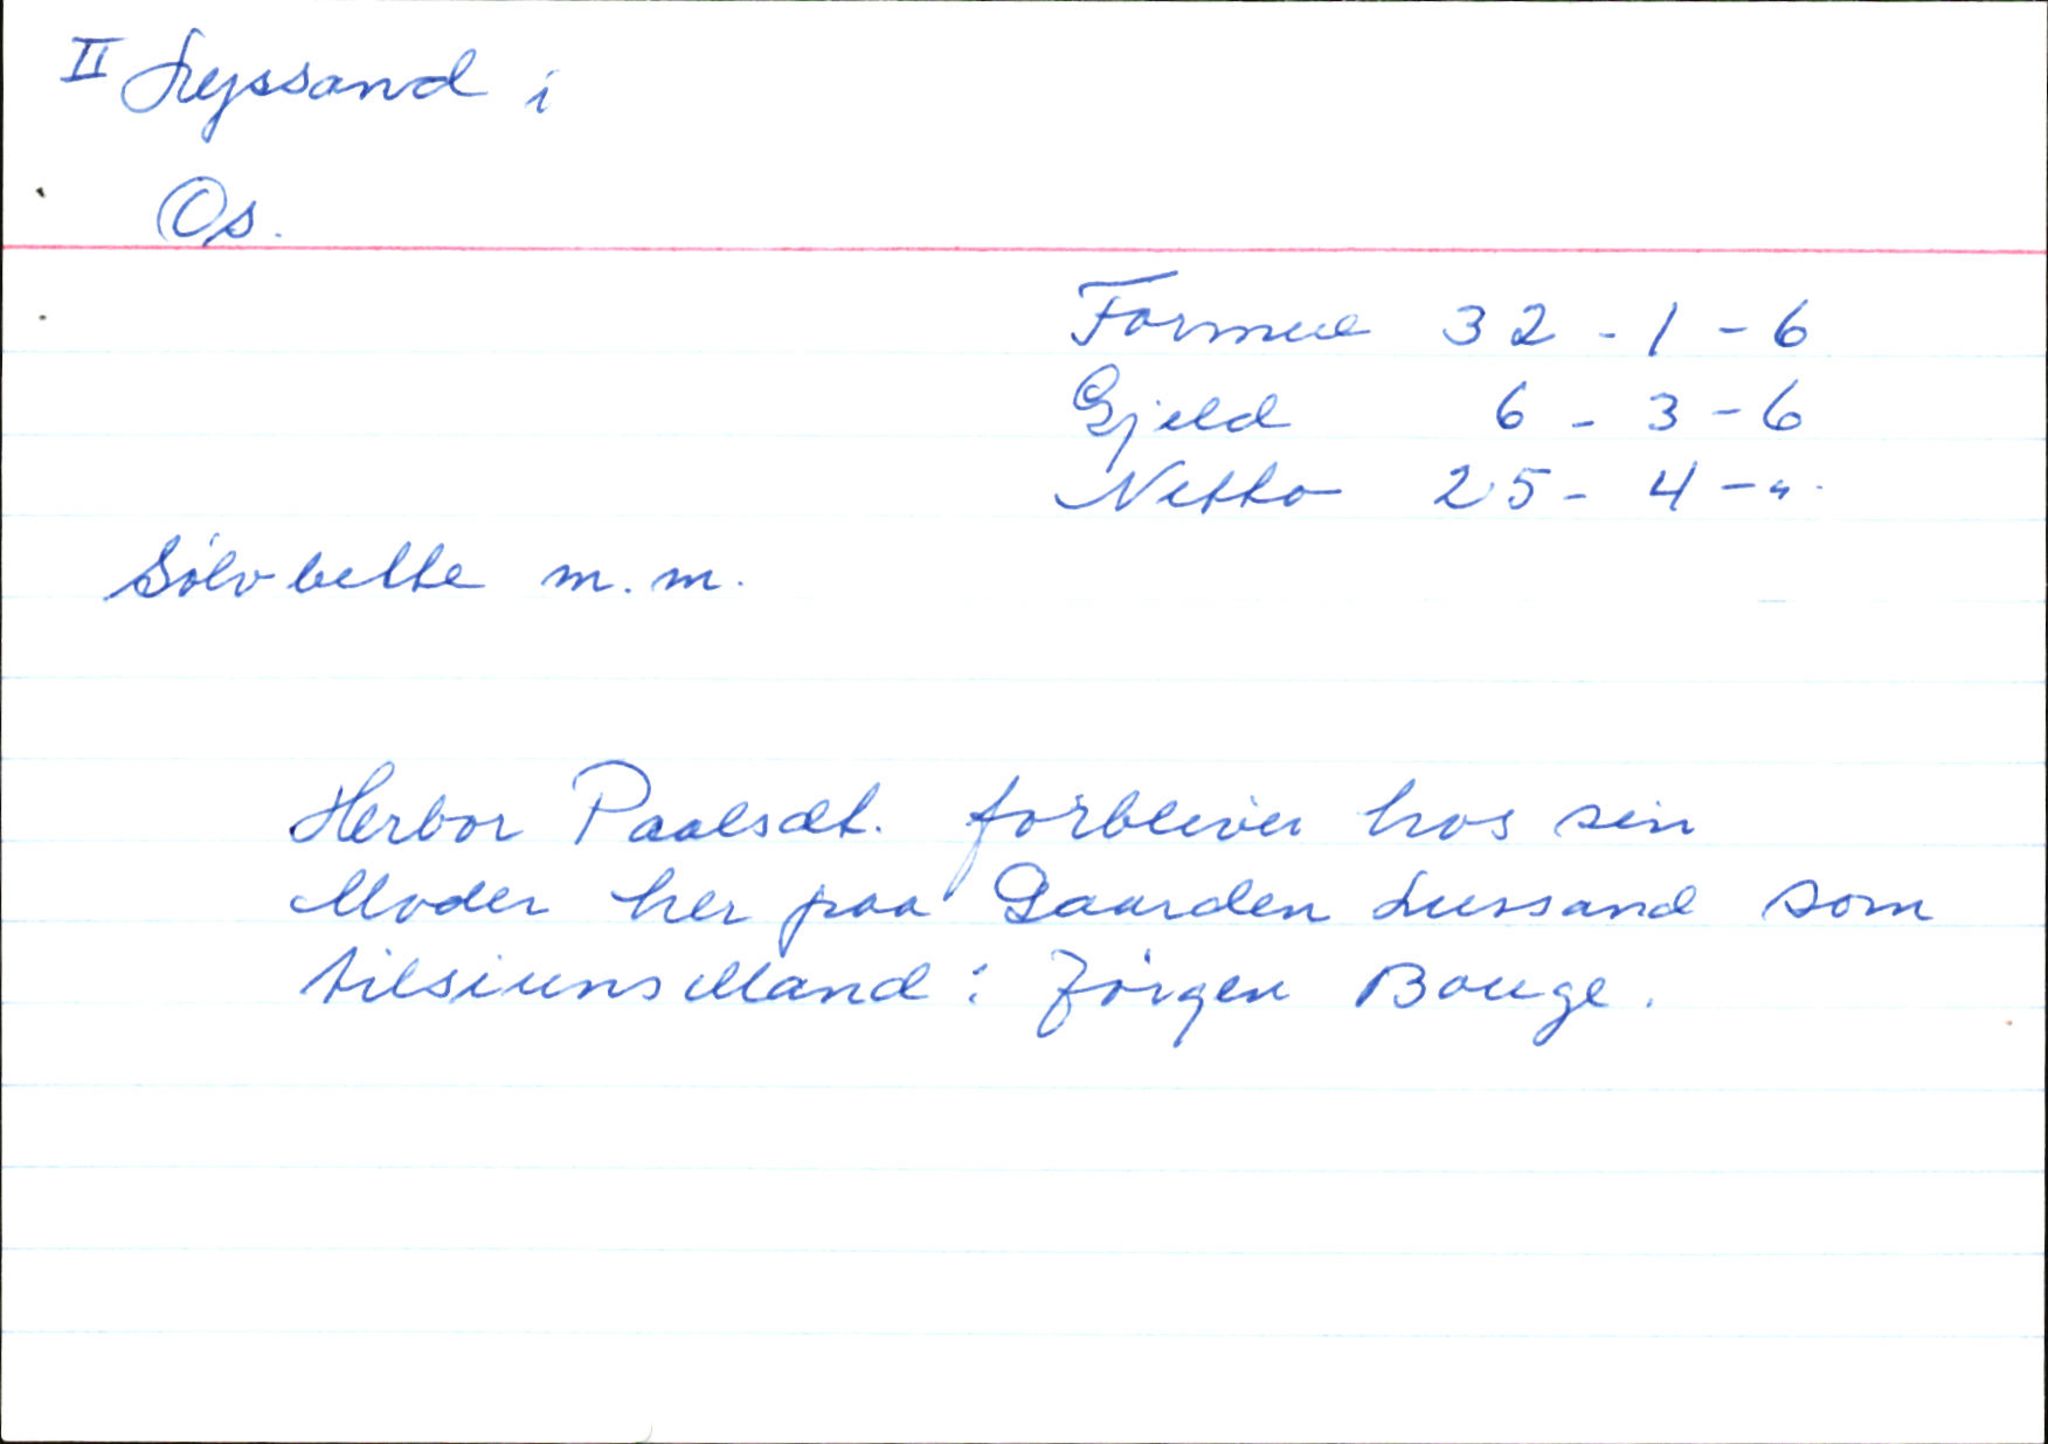 II Lyssand i
Os.
Formue 32 - 1 - 6
Gjeld 6 - 3 - 6
Netto 25 - 4 - "
Sölvbelte m.m.
Herbor Paalsdt. forbliver hos sin
Moder her paa Gaarden Lussand som
tilsiuns Mand: Jörgen Bouge.